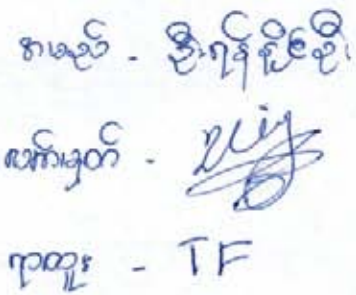 အမည် - ဦးရန်နိုင်ဦး
လက်မှတ် -
ရာထူး - TF